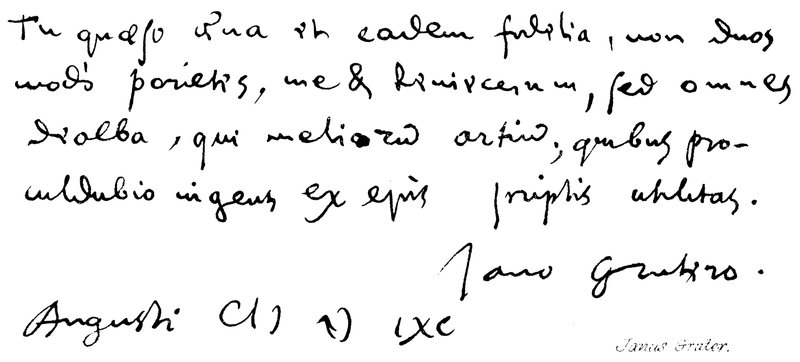 Tu quæso una et eadem fidelia, non duos
modò parietes, me &
dealba, qui meliorū artiū, quibus pro-
culdubio ingens ex eius scriptis utilitas.
Jano Grutero.
Augusti CIↃ IↃ IXC
Janus Gruter.